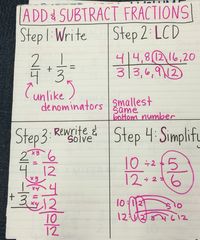 ADD & SUBTRACT FRACTIONS
Step 1: Write
2/4 + 1/3 =
unlike
denominators
Step 2: LCD
4 | 4, 8, 12, 16, 20
3 | 3, 6, 9, 12
smallest
same
bottom number
Step 3: Rewrite &
Solve
2/4 ×3 ×3 = 6/12
+ 1/3 ×4 ×4 = 4/12
10/12
Step 4: Simplify
10 ÷2 = 5
12 ÷2 = 6
10: 1 2 5 10
12: 1 2 3 4 6 12